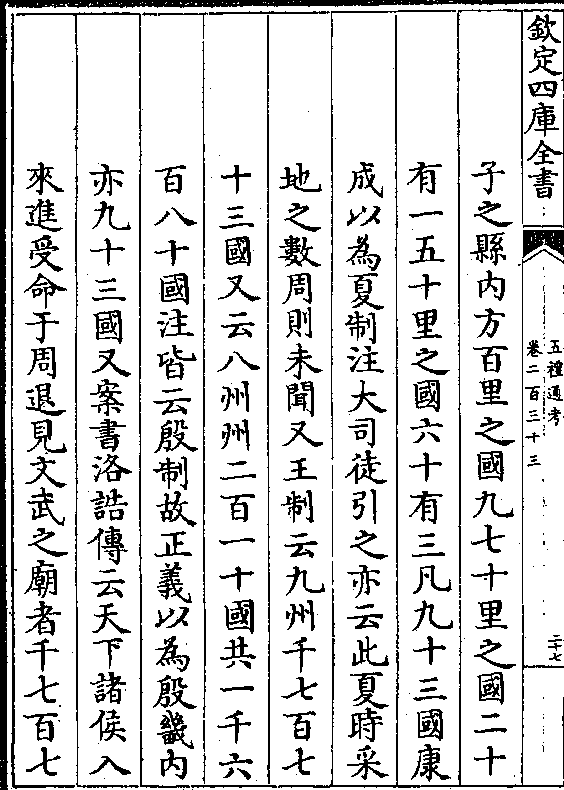 欽定四庫全書
五禮通考
卷二百三十三
二十七
子之縣内方百里之國九七十里之國二十
有一五十里之國六十有三凡九十三國康
成以為夏制注大司徒引之亦云此夏時采
地之數周則未聞又王制云九州千七百七
十三國又云八州州二百一十國共一千六
百八十國注皆云殷制故正義以為殷畿内
亦九十三國又案書洛誥傳云天下諸侯入
來進受命于周退見文武之廟者千七百七